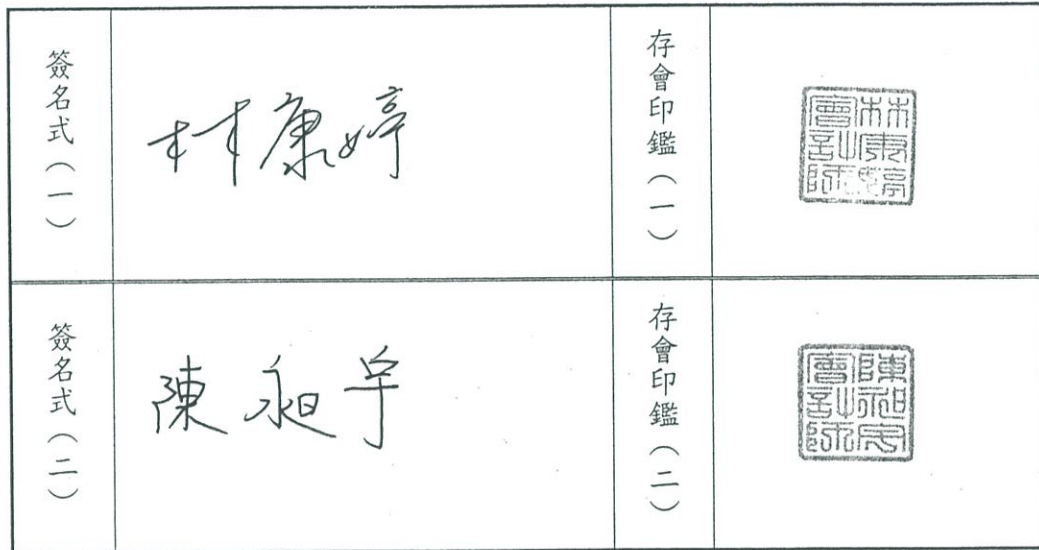 簽名式（一）
林康婷
存會印鑑（一）
林康婷
會計師
簽名式（二）
陳昶宇
存會印鑑（二）
陳昶宇
會計師